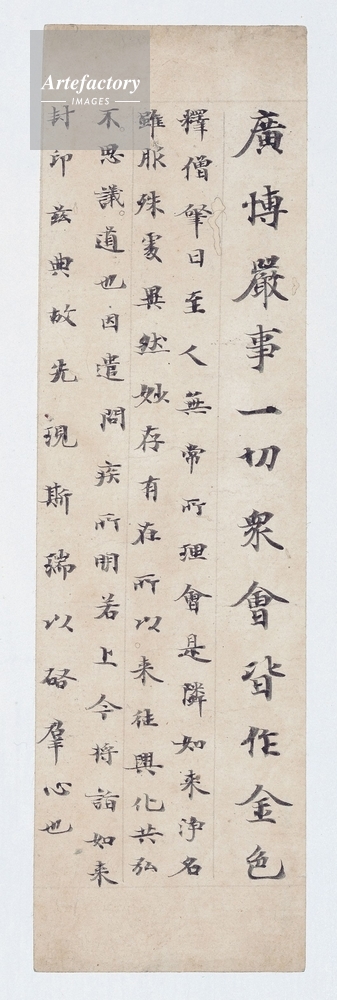 廣博嚴事一切衆會皆作金色
釋僧肇曰至人無常所理會是隣如来浄名
雖服殊處異然妙存有在所以来往興化共弘
不思議道也因遣問疾所明若上今将詣如来
封印茲典故先現斯瑞以啓羣心也
Artefactory
IMAGES